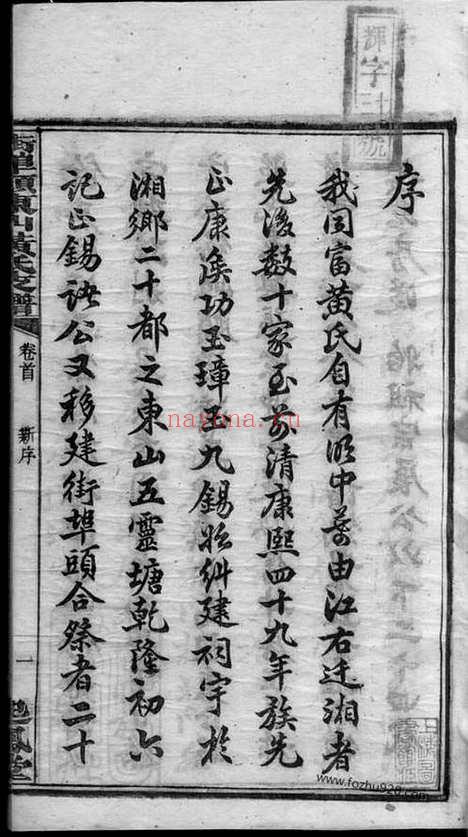 輝字三十號
序
我同富黃氏自有明中葉由江右迁湘者
先後数十家至前清康熙四十九年族先
正康侯功玉璋玉九锡始糾建祠宇於
湘鄉二十都之東山五靈塘乾隆初六
記正錫公又移建街埠頭合祭者二十
街埠頭東山黃氏支譜
卷首
新序
一
鳳堂
nayona.cn
www.fozhu920.com